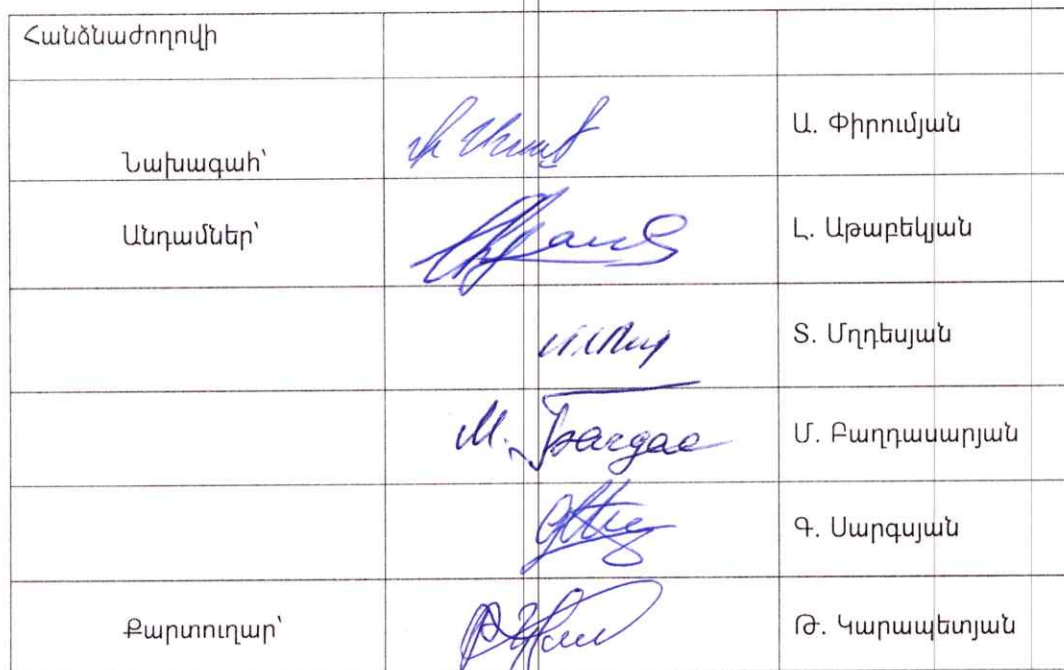 Հանձնաժողովի
Նախագահ՝ Ա. Փիրումյան
Անդամներ՝ Լ. Աթաբեկյան
Տ. Մղդեսյան
М. Багдас Մ. Բաղդասարյան
Գ. Սարգսյան
Քարտուղար՝ Թ. Կարապետյան